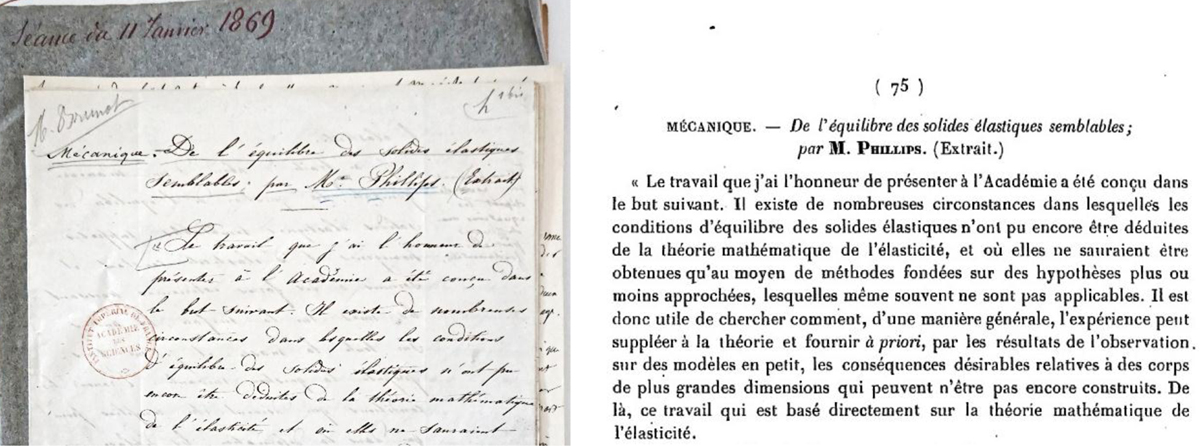 Séance du 11 Janvier 1869.
4 bis
Mécanique. — De l'équilibre des solides élastiques
semblables; par Mr. Phillips. (Extrait)
« Le travail que j'ai l'honneur de
présenter à l'Académie a été conçu dans
le but suivant. Il existe de nombreuses
circonstances dans lesquelles les conditions
d'équilibre des solides élastiques n'ont pu
encore être déduites de la théorie mathématique
de l'élasticité et où elles ne sauraient
INSTITUT IMPÉRIAL DE FRANCE
ACADÉMIE
DES
SCIENCES
( 75 )
MÉCANIQUE. — De l'équilibre des solides élastiques semblables;
par M. PHILLIPS. (Extrait.)
« Le travail que j'ai l'honneur de présenter à l'Académie a été conçu dans
le but suivant. Il existe de nombreuses circonstances dans lesquelles les
conditions d'équilibre des solides élastiques n'ont pu encore être déduites
de la théorie mathématique de l'élasticité, et où elles ne sauraient être
obtenues qu'au moyen de méthodes fondées sur des hypothèses plus ou
moins approchées, lesquelles même souvent ne sont pas applicables. Il est
donc utile de chercher comment, d'une manière générale, l'expérience peut
suppléer à la théorie et fournir à priori, par les résultats de l'observation
sur des modèles en petit, les conséquences désirables relatives à des corps
de plus grandes dimensions qui peuvent n'être pas encore construits. De
là, ce travail qui est basé directement sur la théorie mathématique de
l'élasticité.